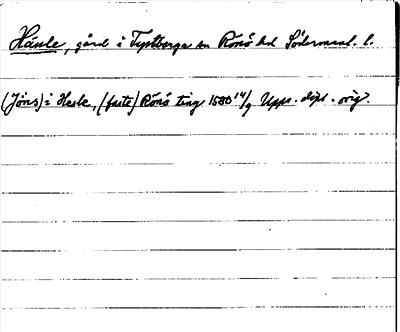 Hånle, gård i Tystberga sn Rönö hd Södermanl. l.
(Jöns) i Hesle, (faste) Rönö ting 1580 14/9 Upps. dipl. orig.